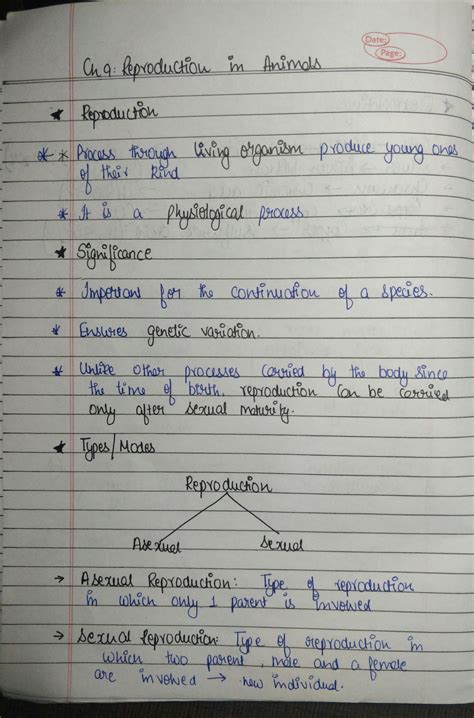 Date:
Page:
Ch 9: Reproduction in Animals
★ Reproduction
* * Process through living organism produce young ones
of their kind
* It is a physiological process
★ Significance
* Important for the continuation of a species.
* Ensures genetic variation.
* Unlike other processes carried by the body since
the time of birth, reproduction can be carried
only after sexual maturity.
★ Types/Modes
Reproduction
Asexual Sexual
→ Asexual Reproduction: Type of reproduction
in which only 1 parent is involved
→ Sexual Reproduction: Type of reproduction in
which two parent, male and a female
are involved → new individual.